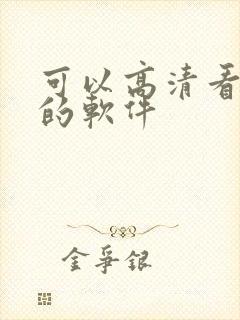 可以高清看
的軟件
金爭銀